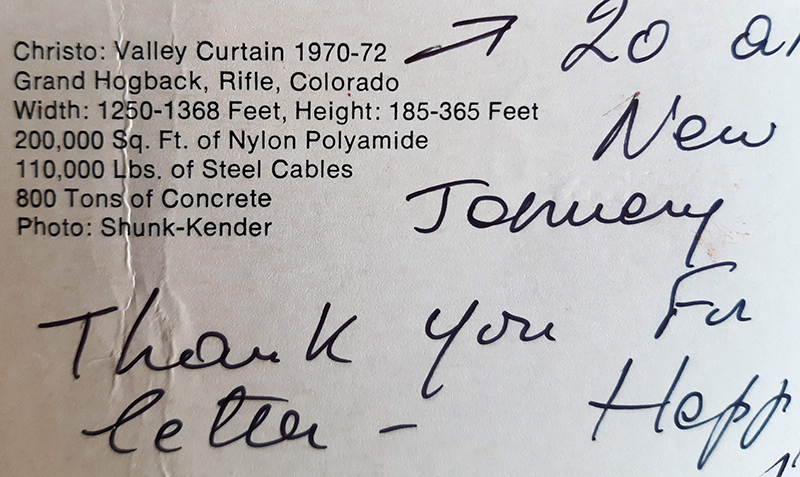 Christo: Valley Curtain 1970-72
Grand Hogback, Rifle, Colorado
Width: 1250-1368 Feet, Height: 185-365 Feet
200,000 Sq. Ft. of Nylon Polyamide
110,000 Lbs. of Steel Cables
800 Tons of Concrete
Photo: Shunk-Kender
20
New
January
Thank you For
letter - Happ